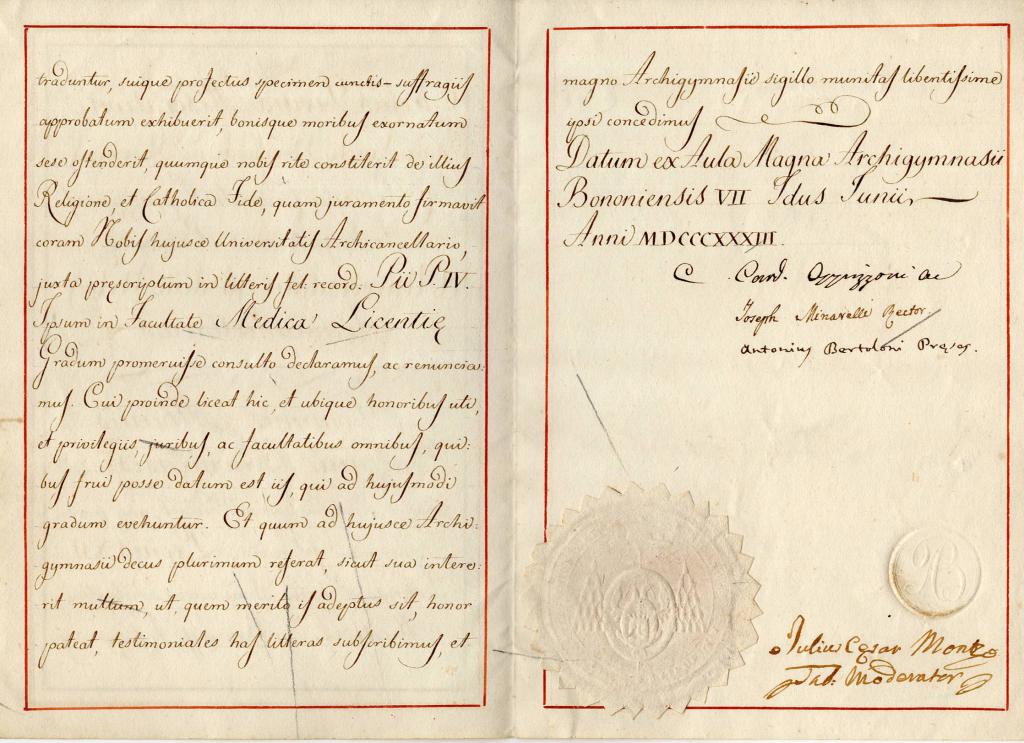 traduntur, suique profectus specimen cunctis-suffragiis
approbatum exhibuerit, bonisque moribus exornatum
sese ostenderit, quumque nobis rite constiterit de illius
Religione, et Catholica Fide, quam juramento firmavit
coram Nobis hujusce Universitatis Archicancellario,
juxta pręscriptum in litteris fel: record: Pii P. IV.
Ipsum in Facultate Medica Licentię
Gradum promeruisse consulto declaramus, ac renuncia:
mus. Cui proinde liceat hic, et ubique honoribus uti,
et privilegiis, juribus, ac facultatibus omnibus, qui:
bus frui posse datum est iis, qui ad hujusmodi
gradum evehuntur. Et quum ad hujusce Archi:
gymnasii decus plurimum referat, sicut sua intere:
rit multum, ut, quem merito is adeptus sit, honor
pateat, testimoniales has litteras subscribimus, et
magno Archigymnasii sigillo munitas libentissime
ipsi concedimus
Datum ex Aula Magna Archigymnasii
Bononiensis VII Idus Junii
Anni MDCCCXXXIII.
C. Card. Oppizzoni ac
Joseph Minarelli Rector.
Antonius Bertoloni Pręses.
AB
Julius Cęsar Moderator